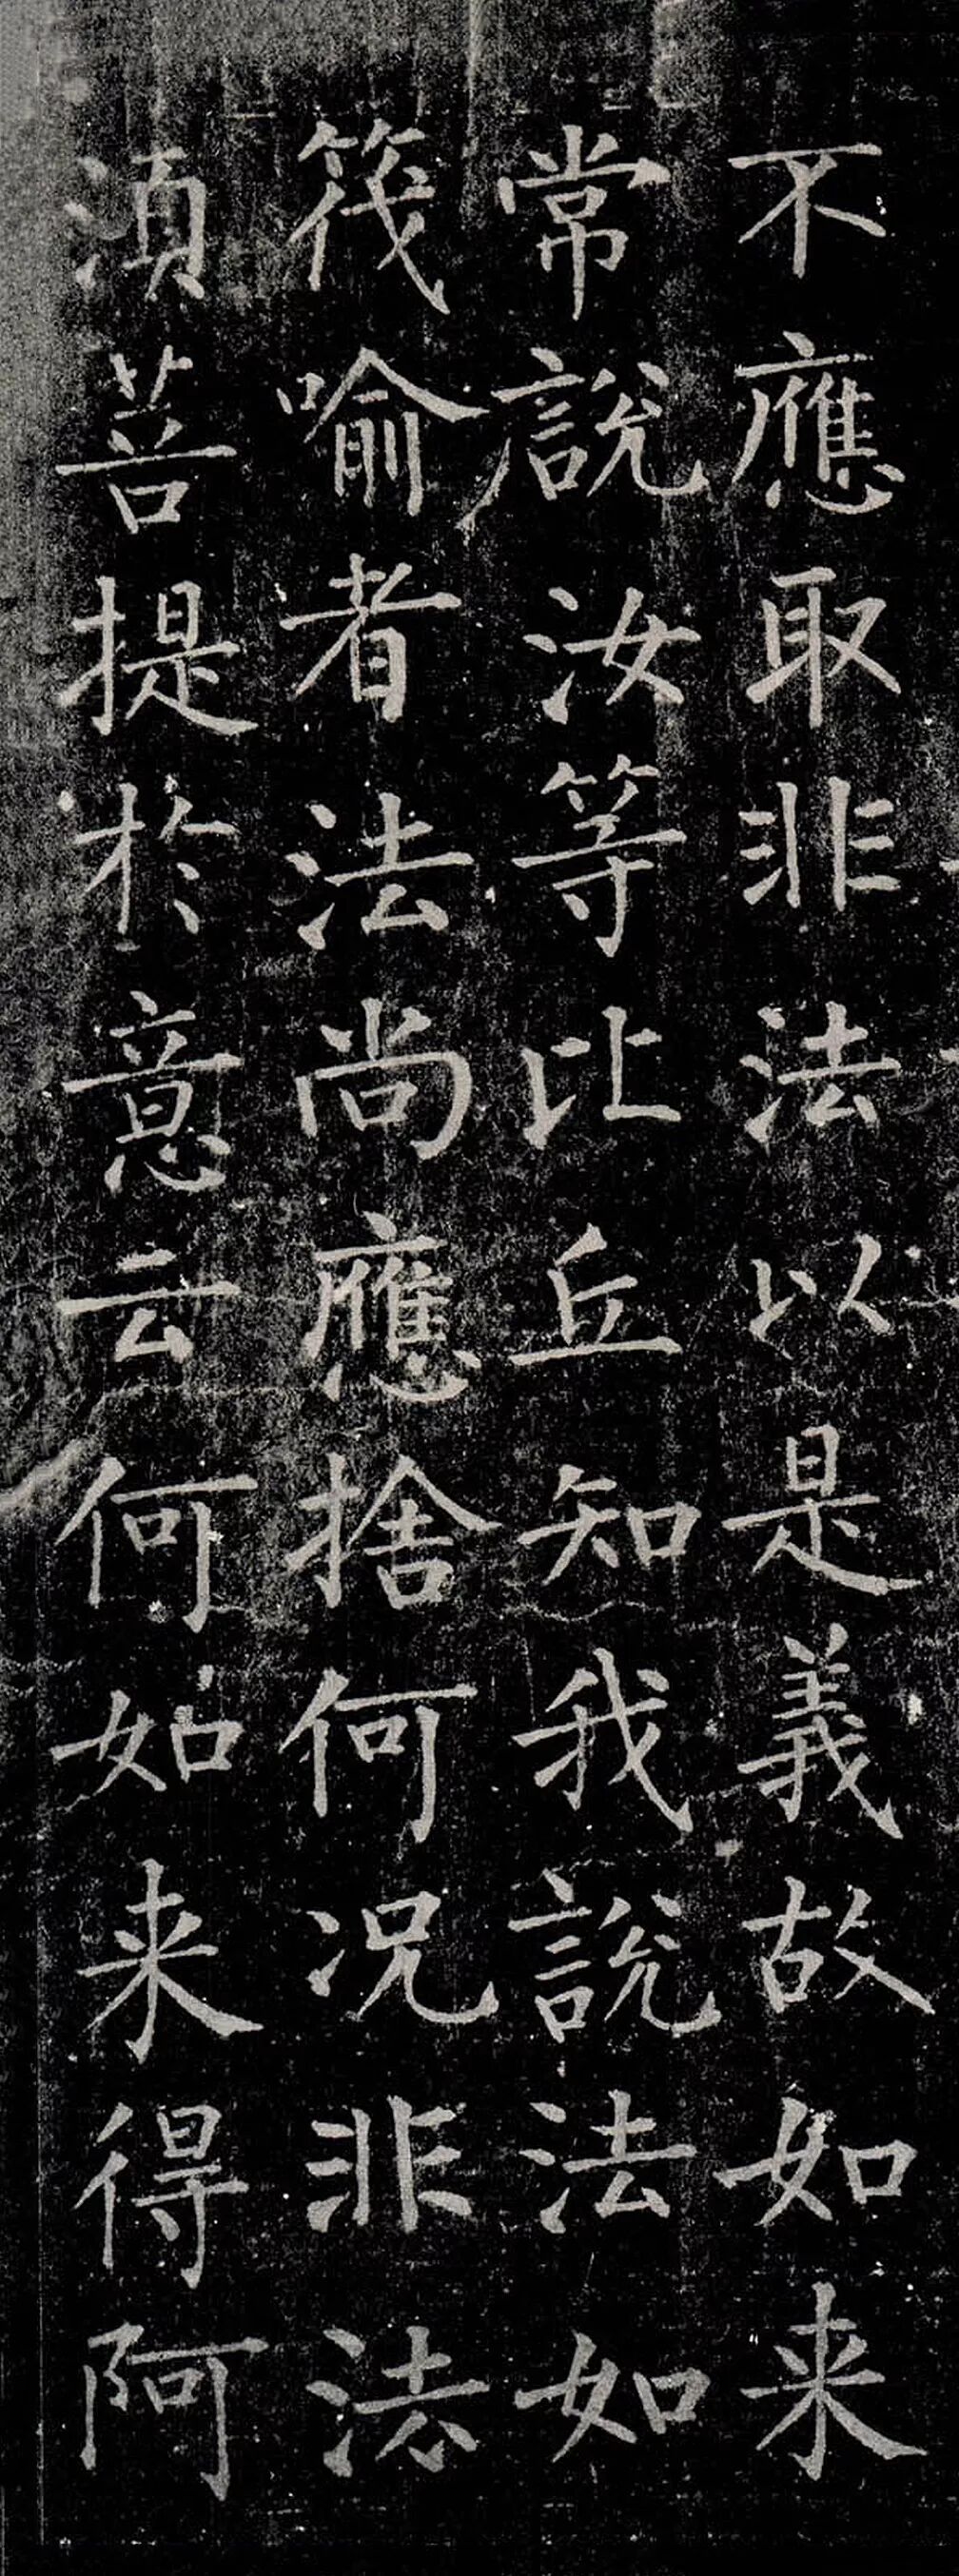 不應取非法以是義故如来
常說汝等比丘知我說法如
筏喻者法尚應捨何況非法
湏菩提於意云何如来得阿